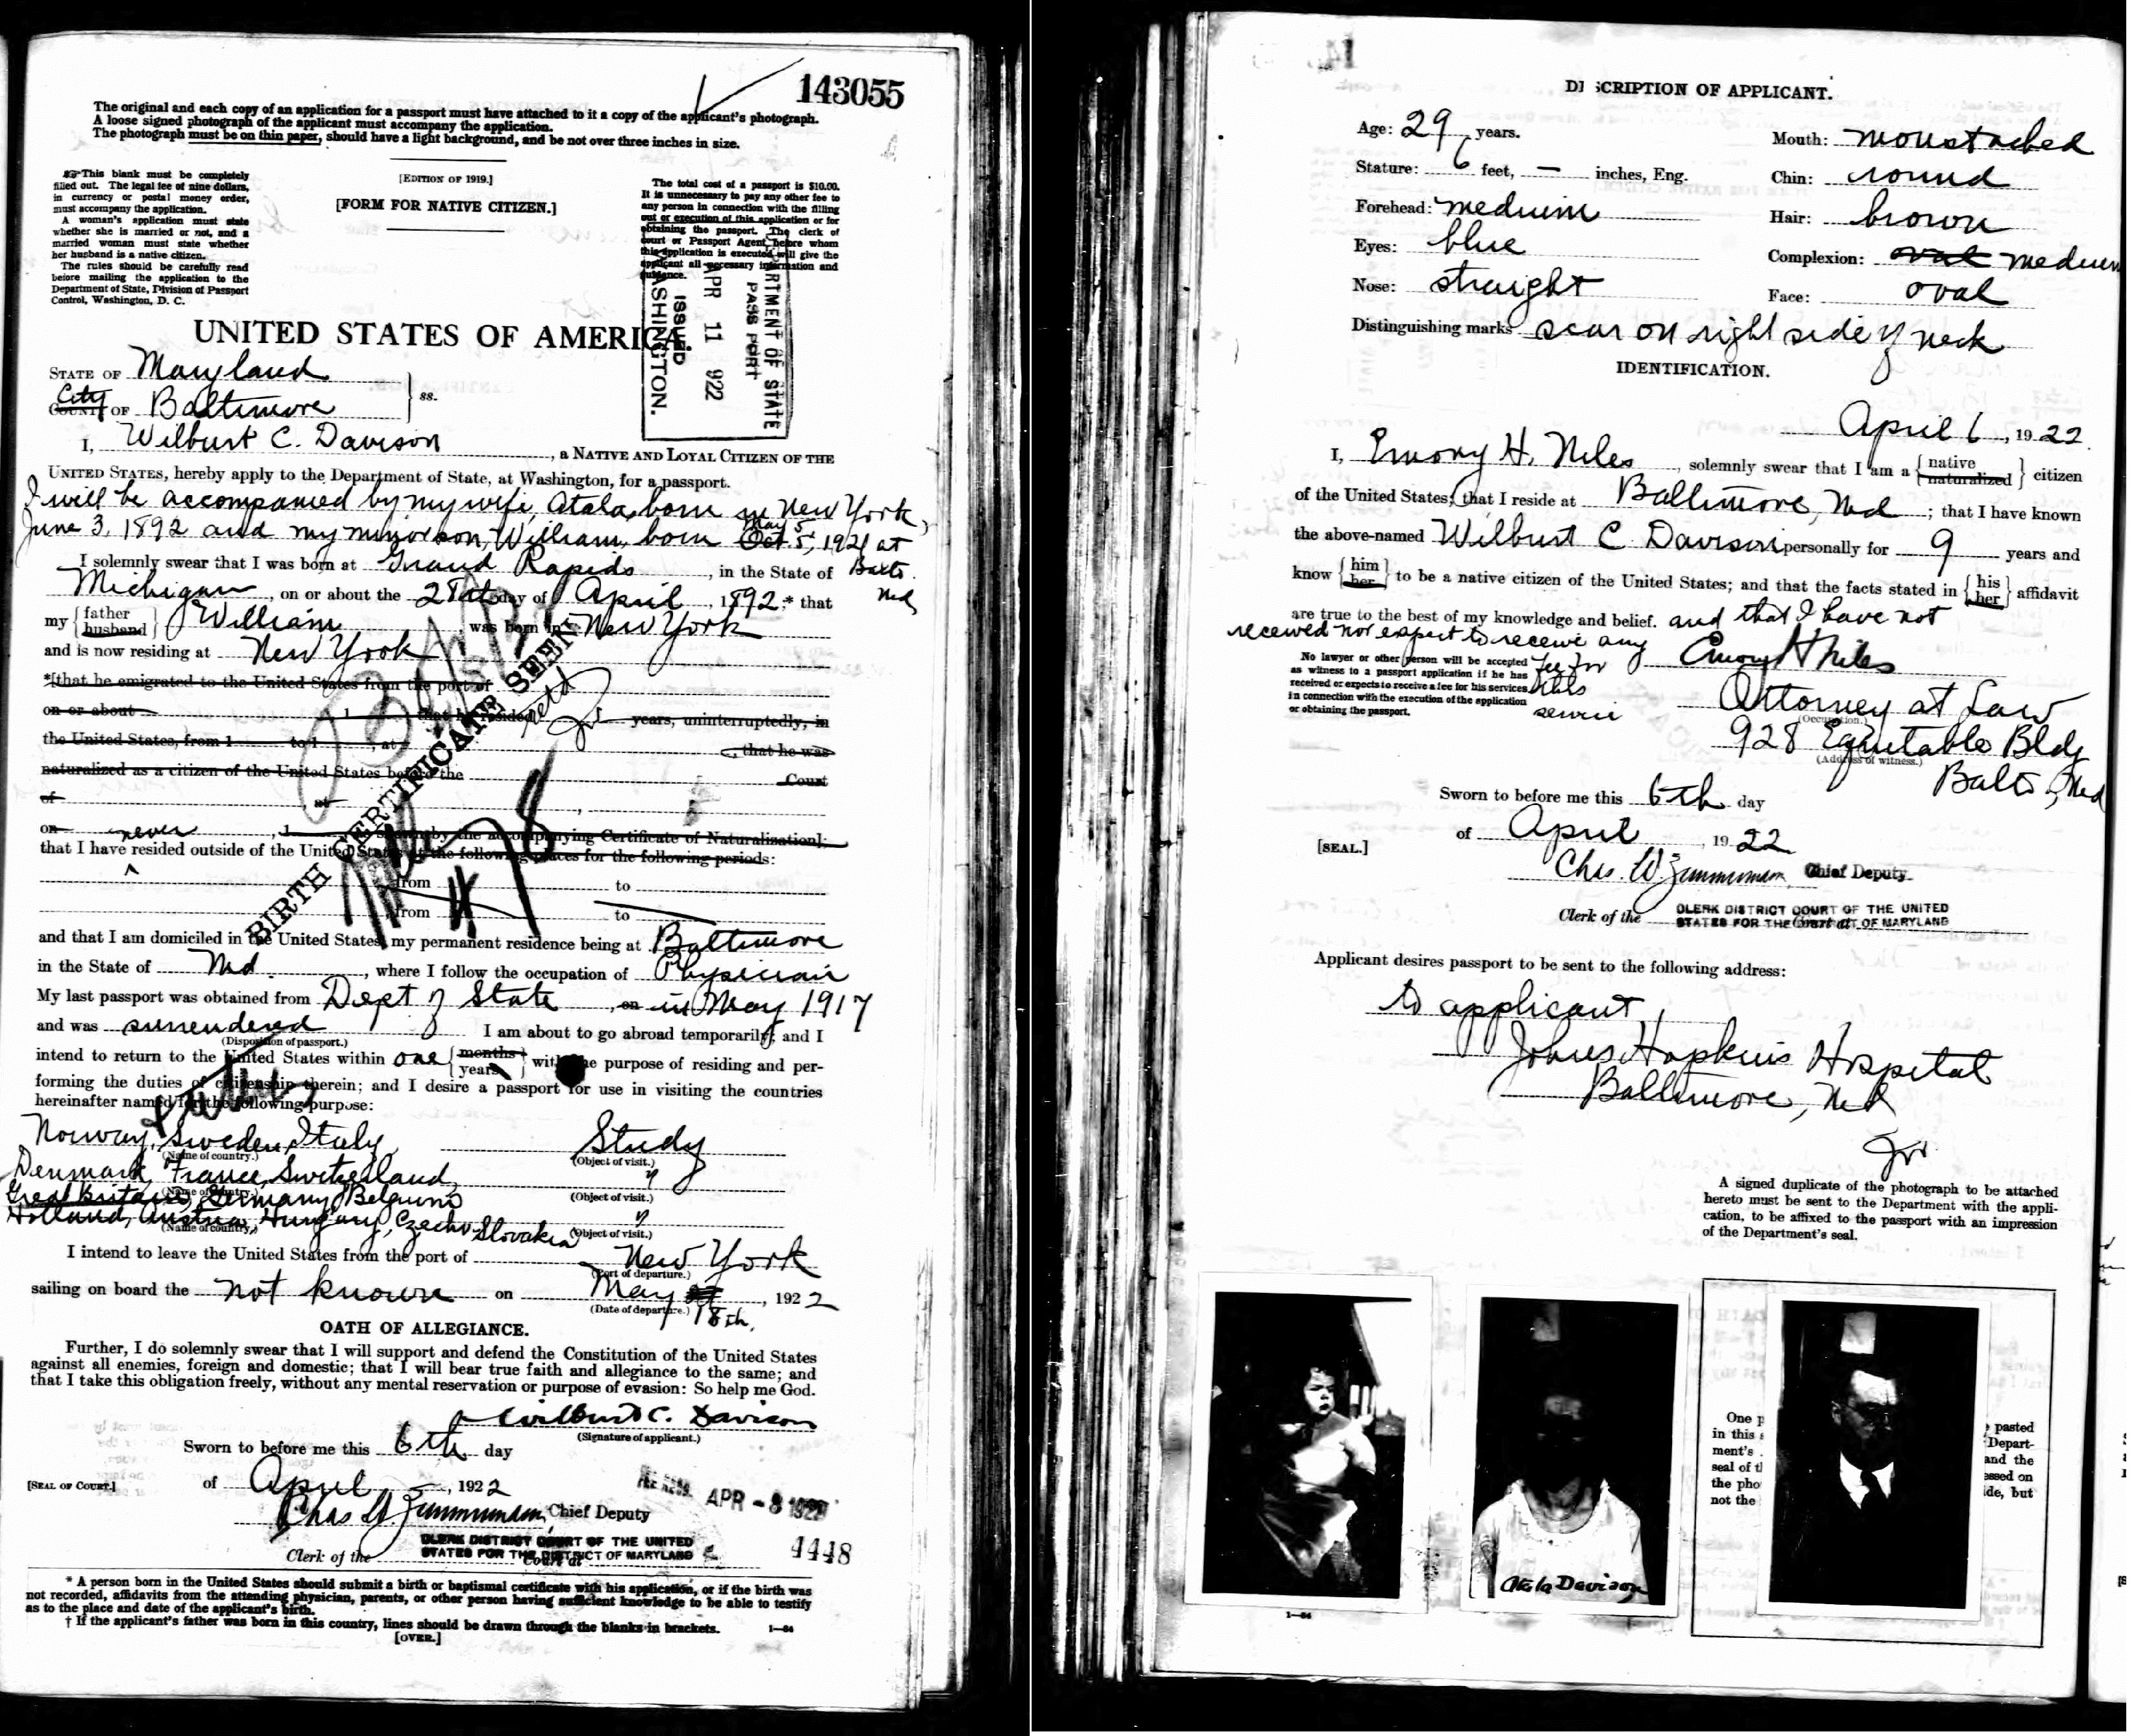 143055
The original and each copy of an application for a passport must have attached to it a copy of the applicant's photograph.
A loose signed photograph of the applicant must accompany the application.
The photograph must be on thin paper, should have a light background, and be not over three inches in size.
This blank must be completely
filled out. The legal fee of nine dollars,
in currency or postal money order,
must accompany the application.
A woman's application must state
whether she is married or not, and a
married woman must state whether
her husband is a native citizen.
The rules should be carefully read
before mailing the application to the
Department of State, Division of Passport
Control, Washington, D. C.
[EDITION OF 1919.]
[FORM FOR NATIVE CITIZEN.]
The total cost of a passport is $10.00.
It is unnecessary to pay any other fee to
any person in connection with the filling
out or execution of this application or for
obtaining the passport. The clerk of
court or Passport Agent before whom
this application is executed will give the
applicant all necessary information and
guidance.
DEPARTMENT OF STATE
PASSPORT
APR 11 922
ISSUED
WASHINGTON.
UNITED STATES OF AMERICA.
STATE OF Maryland
City
COUNTY OF Baltimore
ss.
I, Wilburt C. Davison, a NATIVE AND LOYAL CITIZEN OF THE
UNITED STATES, hereby apply to the Department of State, at Washington, for a passport.
I will be accompanied by my wife, Atala, born in New York,
June 3, 1892 and my minor son, William, born Oct 5, May 5, 1921 at
Balto. Md
I solemnly swear that I was born at Grand Rapids, in the State of
Michigan, on or about the 28th day of April, 1892;* that
my {father husband} William was born in New York
and is now residing at New York
*[that he emigrated to the United States from the port of
on or about 1 that he resided 1 years, uninterruptedly, in
the United States, from 1 to 1, at, that he was
naturalized as a citizen of the United States before the Court
of, at,
on, 1 as shown by the accompanying Certificate of Naturalization];
never
that I have resided outside of the United States at the following places for the following periods:
from to
from to
BIRTH CERTIFICATE SEEN
and that I am domiciled in the United States, my permanent residence being at Baltimore
in the State of Md., where I follow the occupation of Physician
My last passport was obtained from Dept of State, on in May 1917
and was surrendered I am about to go abroad temporarily, and I
(Disposition of passport.)
intend to return to the United States within one {months years} with the purpose of residing and per-
forming the duties of citizenship therein; and I desire a passport for use in visiting the countries
hereinafter named for the following purpose:
Norway, Sweden, Italy, Study
(Name of country.) (Object of visit.)
Denmark, France, Switzerland, "
(Name of country.) (Object of visit.)
Great Britain, Germany, Belgium
Holland, Austria, Hungary, Czecho Slovakia "
(Name of country.) (Object of visit.)
I intend to leave the United States from the port of New York
(Port of departure.)
sailing on board the not known on May 18th, 1922
(Date of departure.)
OATH OF ALLEGIANCE.
Further, I do solemnly swear that I will support and defend the Constitution of the United States
against all enemies, foreign and domestic; that I will bear true faith and allegiance to the same; and
that I take this obligation freely, without any mental reservation or purpose of evasion: So help me God.
Wilburt C. Davison
(Signature of applicant.)
Sworn to before me this 6th day
[SEAL OF COURT.]
of April, 1922
APR - 8 1922
Chas W. Zimmerman, Chief Deputy
CLERK DISTRICT COURT OF THE UNITED
STATES FOR THE DISTRICT OF MARYLAND
Clerk of the Court at
4448
* A person born in the United States should submit a birth or baptismal certificate with his application, or if the birth was
not recorded, affidavits from the attending physician, parents, or other person having sufficient knowledge to be able to testify
as to the place and date of the applicant's birth.
† If the applicant's father was born in this country, lines should be drawn through the blanks in brackets.
1—64
[OVER.]
DESCRIPTION OF APPLICANT.
Age: 29 years. Mouth: moustached
Stature: 6 feet, — inches, Eng. Chin: round
Forehead: medium Hair: brown
Eyes: blue Complexion: oval medium
Nose: straight Face: oval
Distinguishing marks scar on right side of neck
IDENTIFICATION.
April 6, 1922
I, Emory H. Niles, solemnly swear that I am a {native naturalized} citizen
of the United States; that I reside at Baltimore, Md; that I have known
the above-named Wilburt C. Davison personally for 9 years and
know {him her} to be a native citizen of the United States; and that the facts stated in {his her} affidavit
are true to the best of my knowledge and belief. and that I have not
received nor expect to receive any
fee for this service
No lawyer or other person will be accepted
as witness to a passport application if he has
received or expects to receive a fee for his services
in connection with the execution of the application
or obtaining the passport.
Emory H Niles
Attorney at Law
(Occupation.)
928 Equitable Bldg
(Address of witness.)
Balto, Md
Sworn to before me this 6th day
of April, 1922
[SEAL.]
Chas. W. Zimmerman, Chief Deputy
CLERK DISTRICT COURT OF THE UNITED
STATES FOR THE DISTRICT OF MARYLAND
Clerk of the Court at
Applicant desires passport to be sent to the following address:
to applicant,
Johns Hopkins Hospital
Baltimore, Md
A signed duplicate of the photograph to be attached
hereto must be sent to the Department with the appli-
cation, to be affixed to the passport with an impression
of the Department's seal.
One p
in this
ment's
seal of th
the pho
not the
pasted
Depart-
and the
essed on
de, but
Atala Davison
1—64